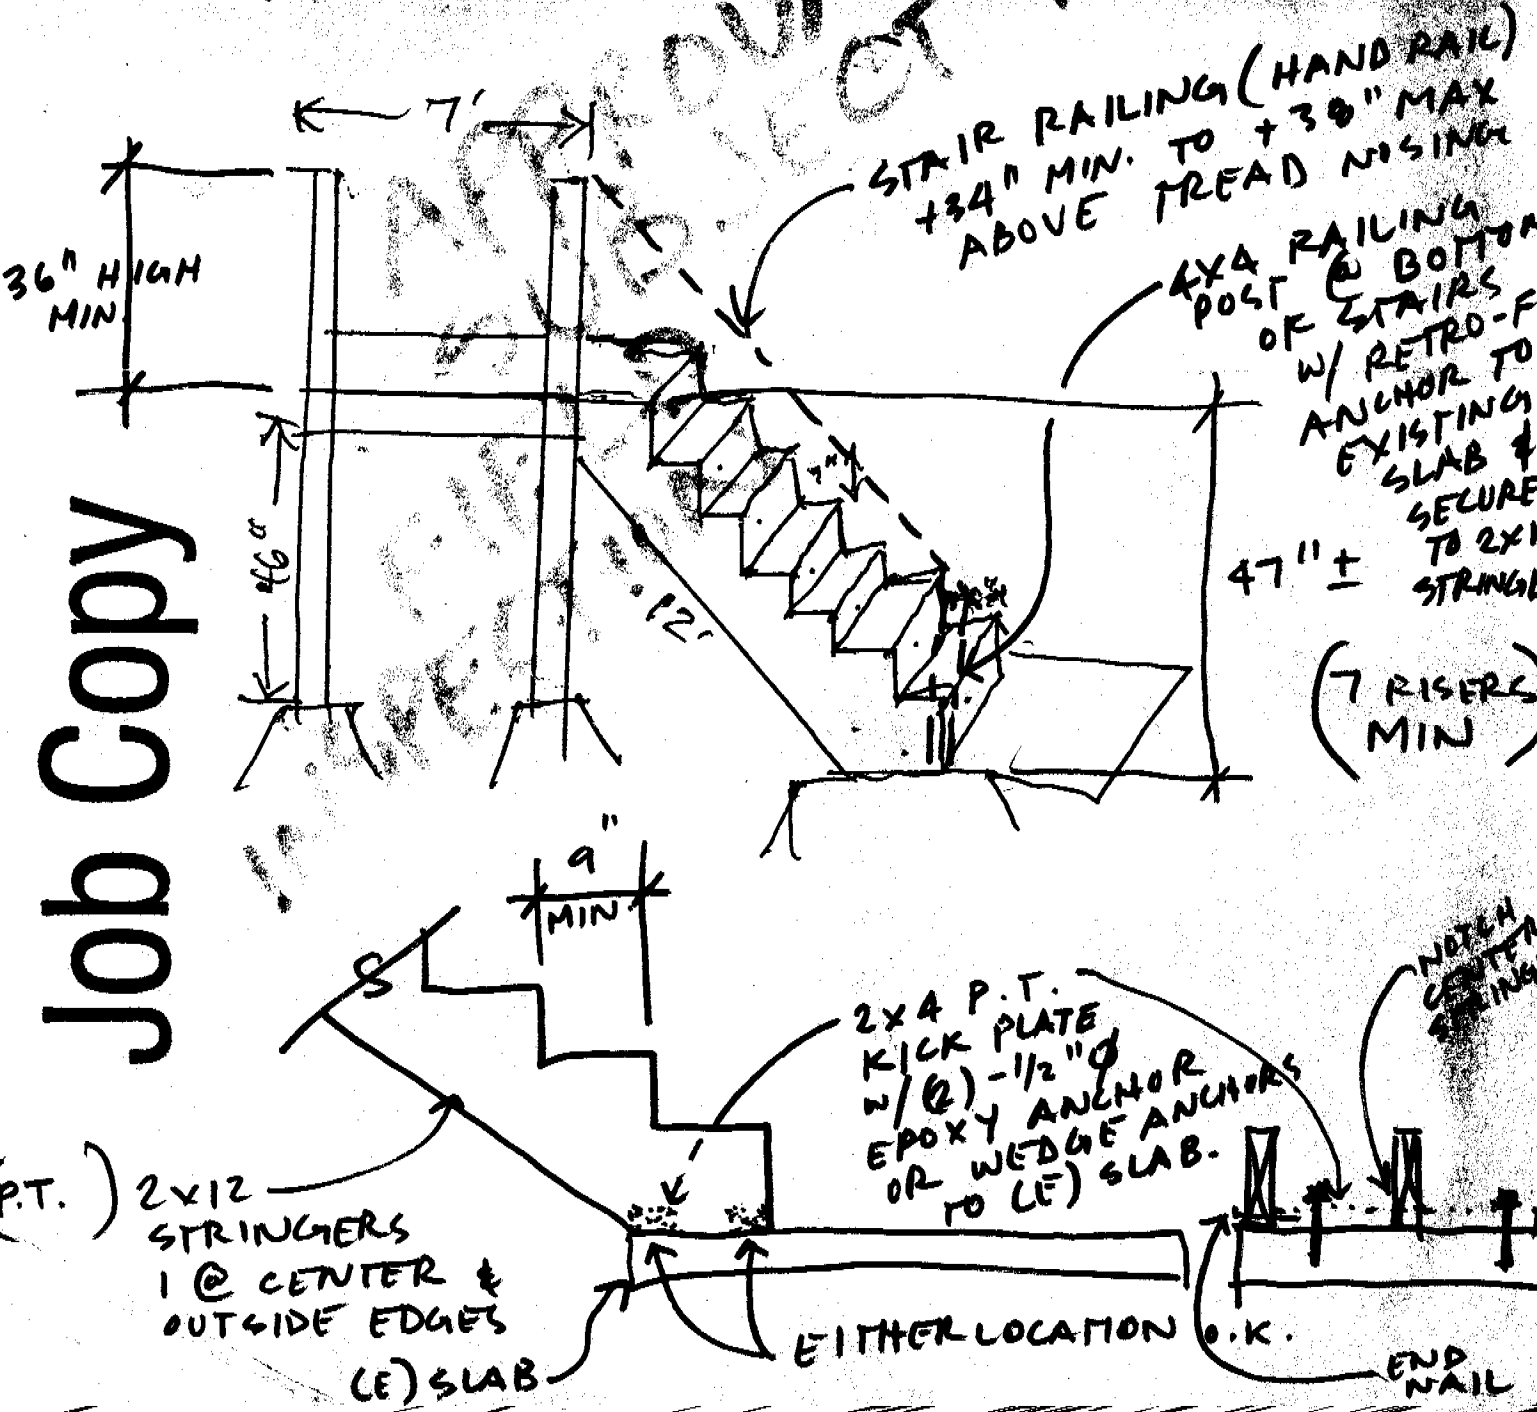 7'
STAIR RAILING (HAND RAIL)
+34" MIN. TO +38" MAX
ABOVE TREAD NOSING
36" HIGH
MIN.
4x4 RAILING
POST @ BOTTOM
OF STAIRS
W/ RETRO-F
ANCHOR TO
EXISTING
SLAB &
SECURE
TO 2x1
STRINGE
46"
7"
12'
47" ±
(7 RISERS
MIN)
Job Copy
9"
MIN.
S
2x4 P.T.
KICK PLATE
W/ (2) - 1/2" Ø
EPOXY ANCHOR
OR WEDGE ANCHORS
TO (E) SLAB.
NOTCH
CENTER
STRING
P.T.) 2x12
STRINGERS
1 @ CENTER &
OUTSIDE EDGES
(E) SLAB
EITHER LOCATION O.K.
END
NAIL